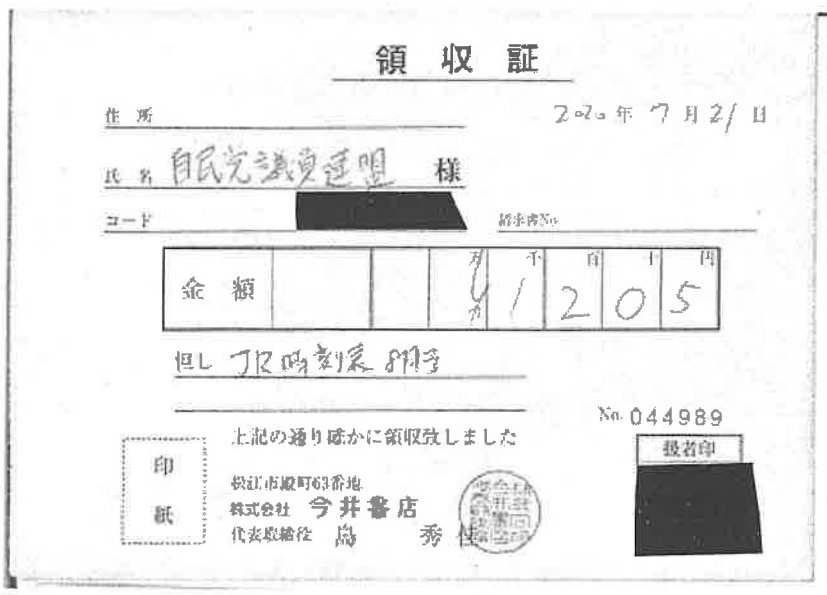 領収証
住所
2020年7月21日
氏名 自民党議員連盟 様
コード
請求書No.
金額 万千百十円 1205
但し JR時刻表 8月号
No. 044989
上記の通り確かに領収致しました
扱者印
印紙
松江市殿町63番地
株式会社 今井書店
代表取締役 島 秀佳